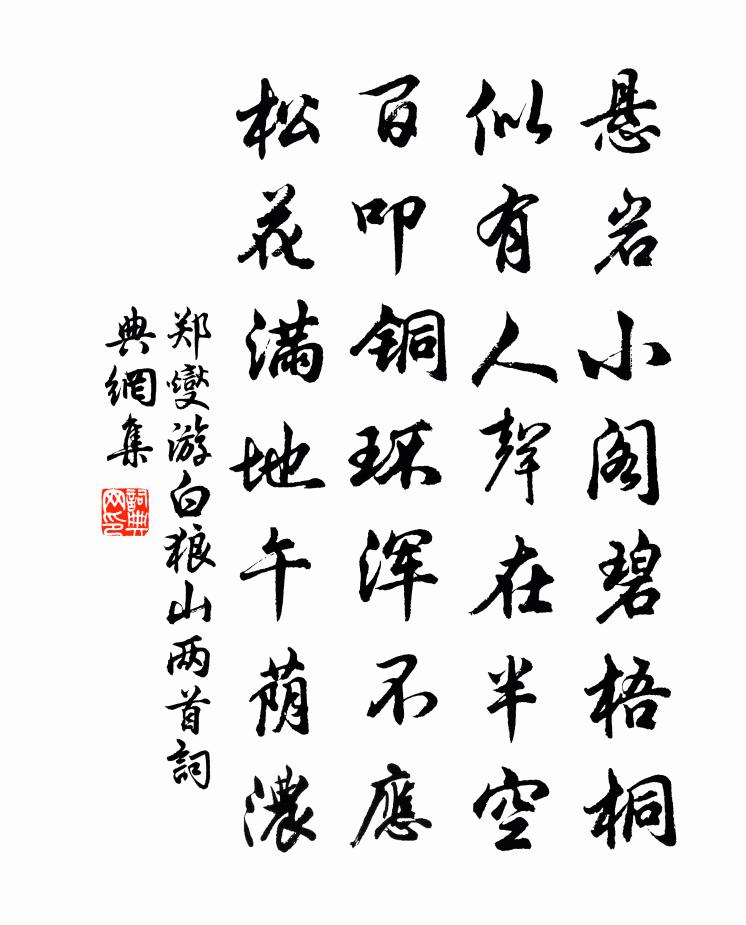 悬岩小阁碧梧桐
似有人聲在半空
百叩铜环浑不應
松花满地午荫濃
郑燮游白狼山两首詞
典網集
詞典网印